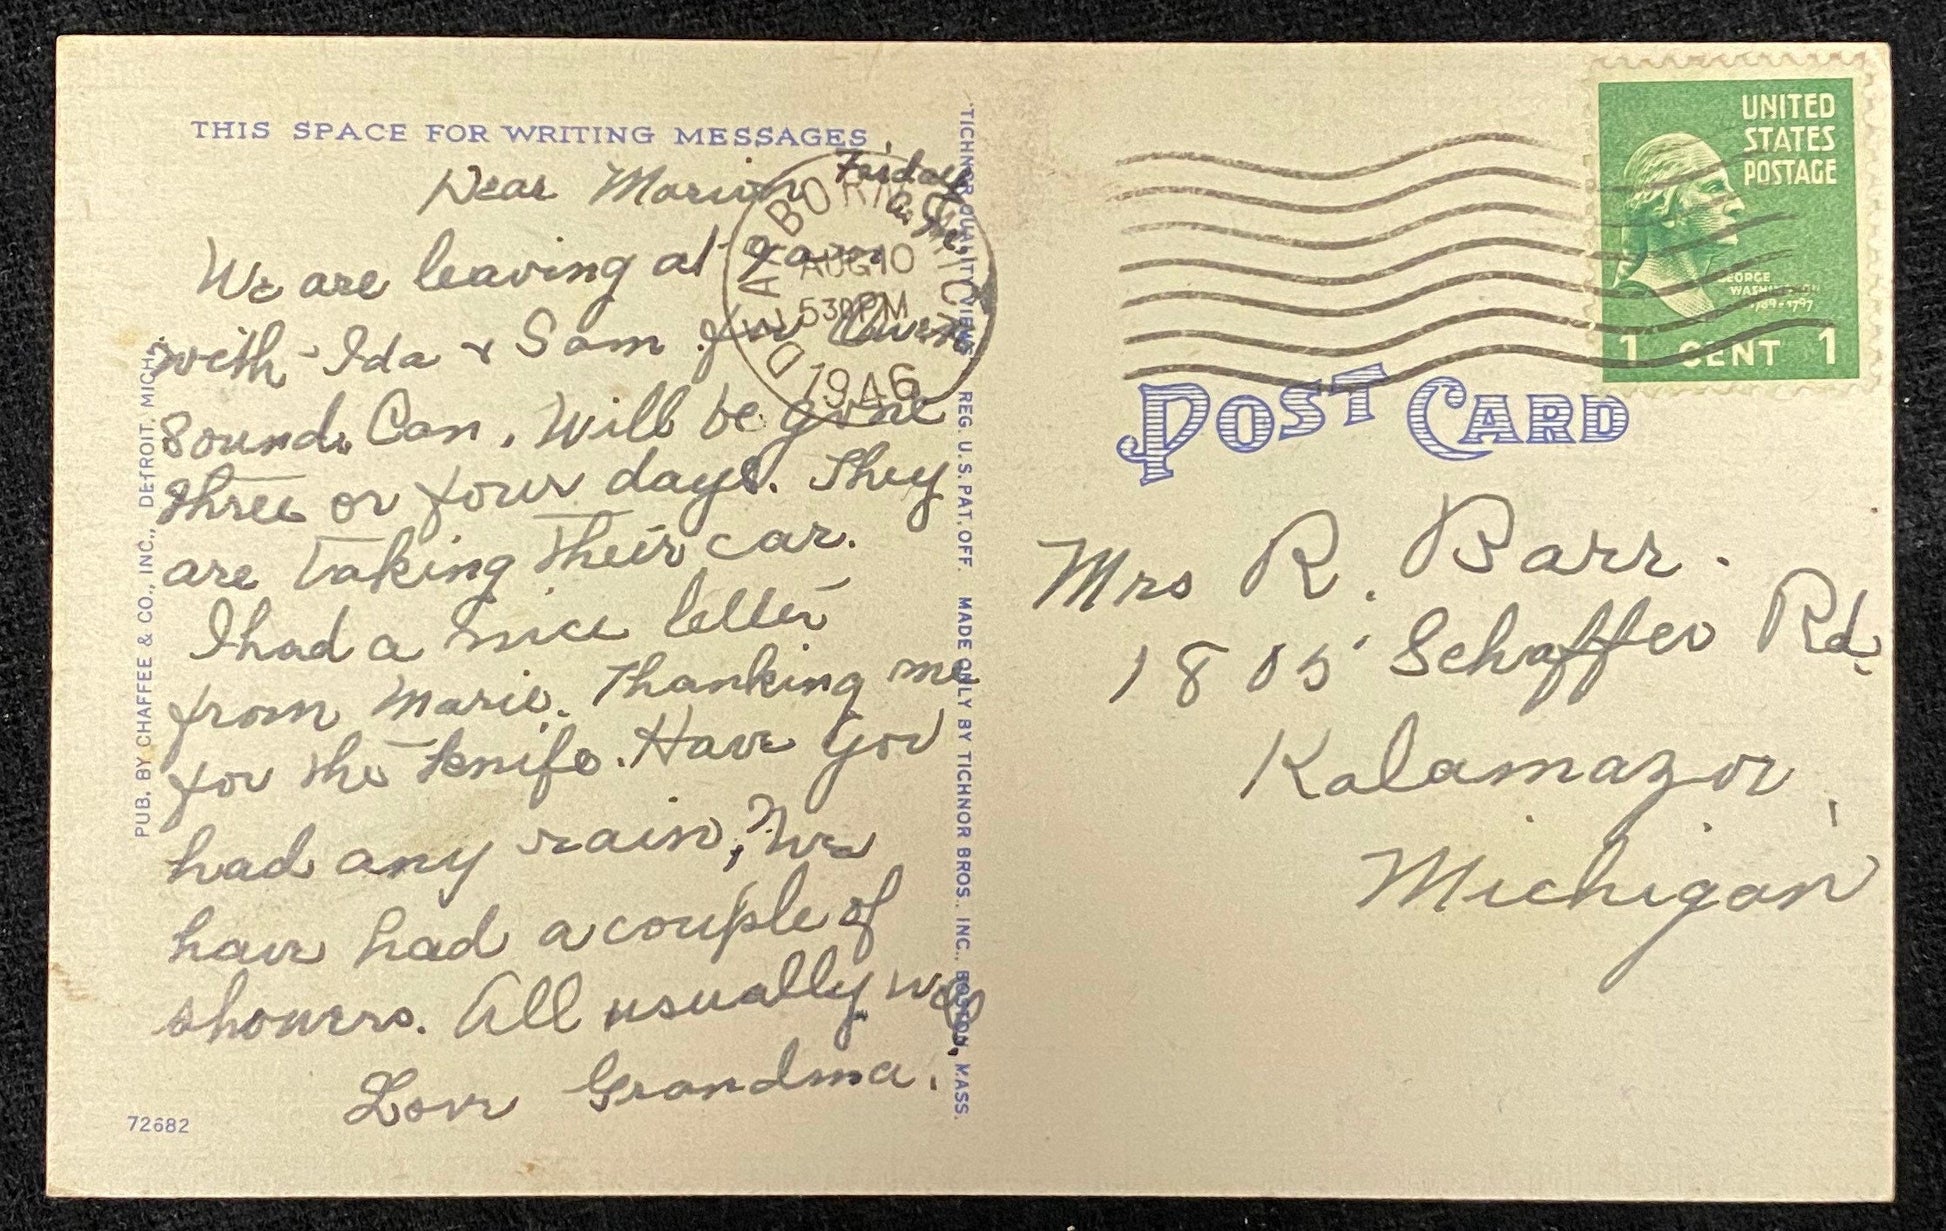 THIS SPACE FOR WRITING MESSAGES
Friday
a.m.
Dear Marion
We are leaving at 9 a.m.
with Ida & Sam for Owen
Sound. Can. Will be gone
three or four days. They
are taking their car.
I had a nice letter
from Marie. Thanking me
for the knife. Have you
had any rain, we
have had a couple of
showers. All usually well
Love Grandma.
72682
PUB. BY CHAFFEE & CO., INC., DETROIT, MICH.
"TICHNOR QUALITY VIEWS" REG. U. S. PAT. OFF. MADE ONLY BY TICHNOR BROS. INC., BOSTON, MASS.
DEARBORN, MICH.
AUG 10
530 PM
1946
UNITED
STATES
POSTAGE
GEORGE
WASHINGTON
1789-1797
1 CENT 1
POST CARD
Mrs R. Barr.
1805 Schaffer Rd.
Kalamazoo,
Michigan